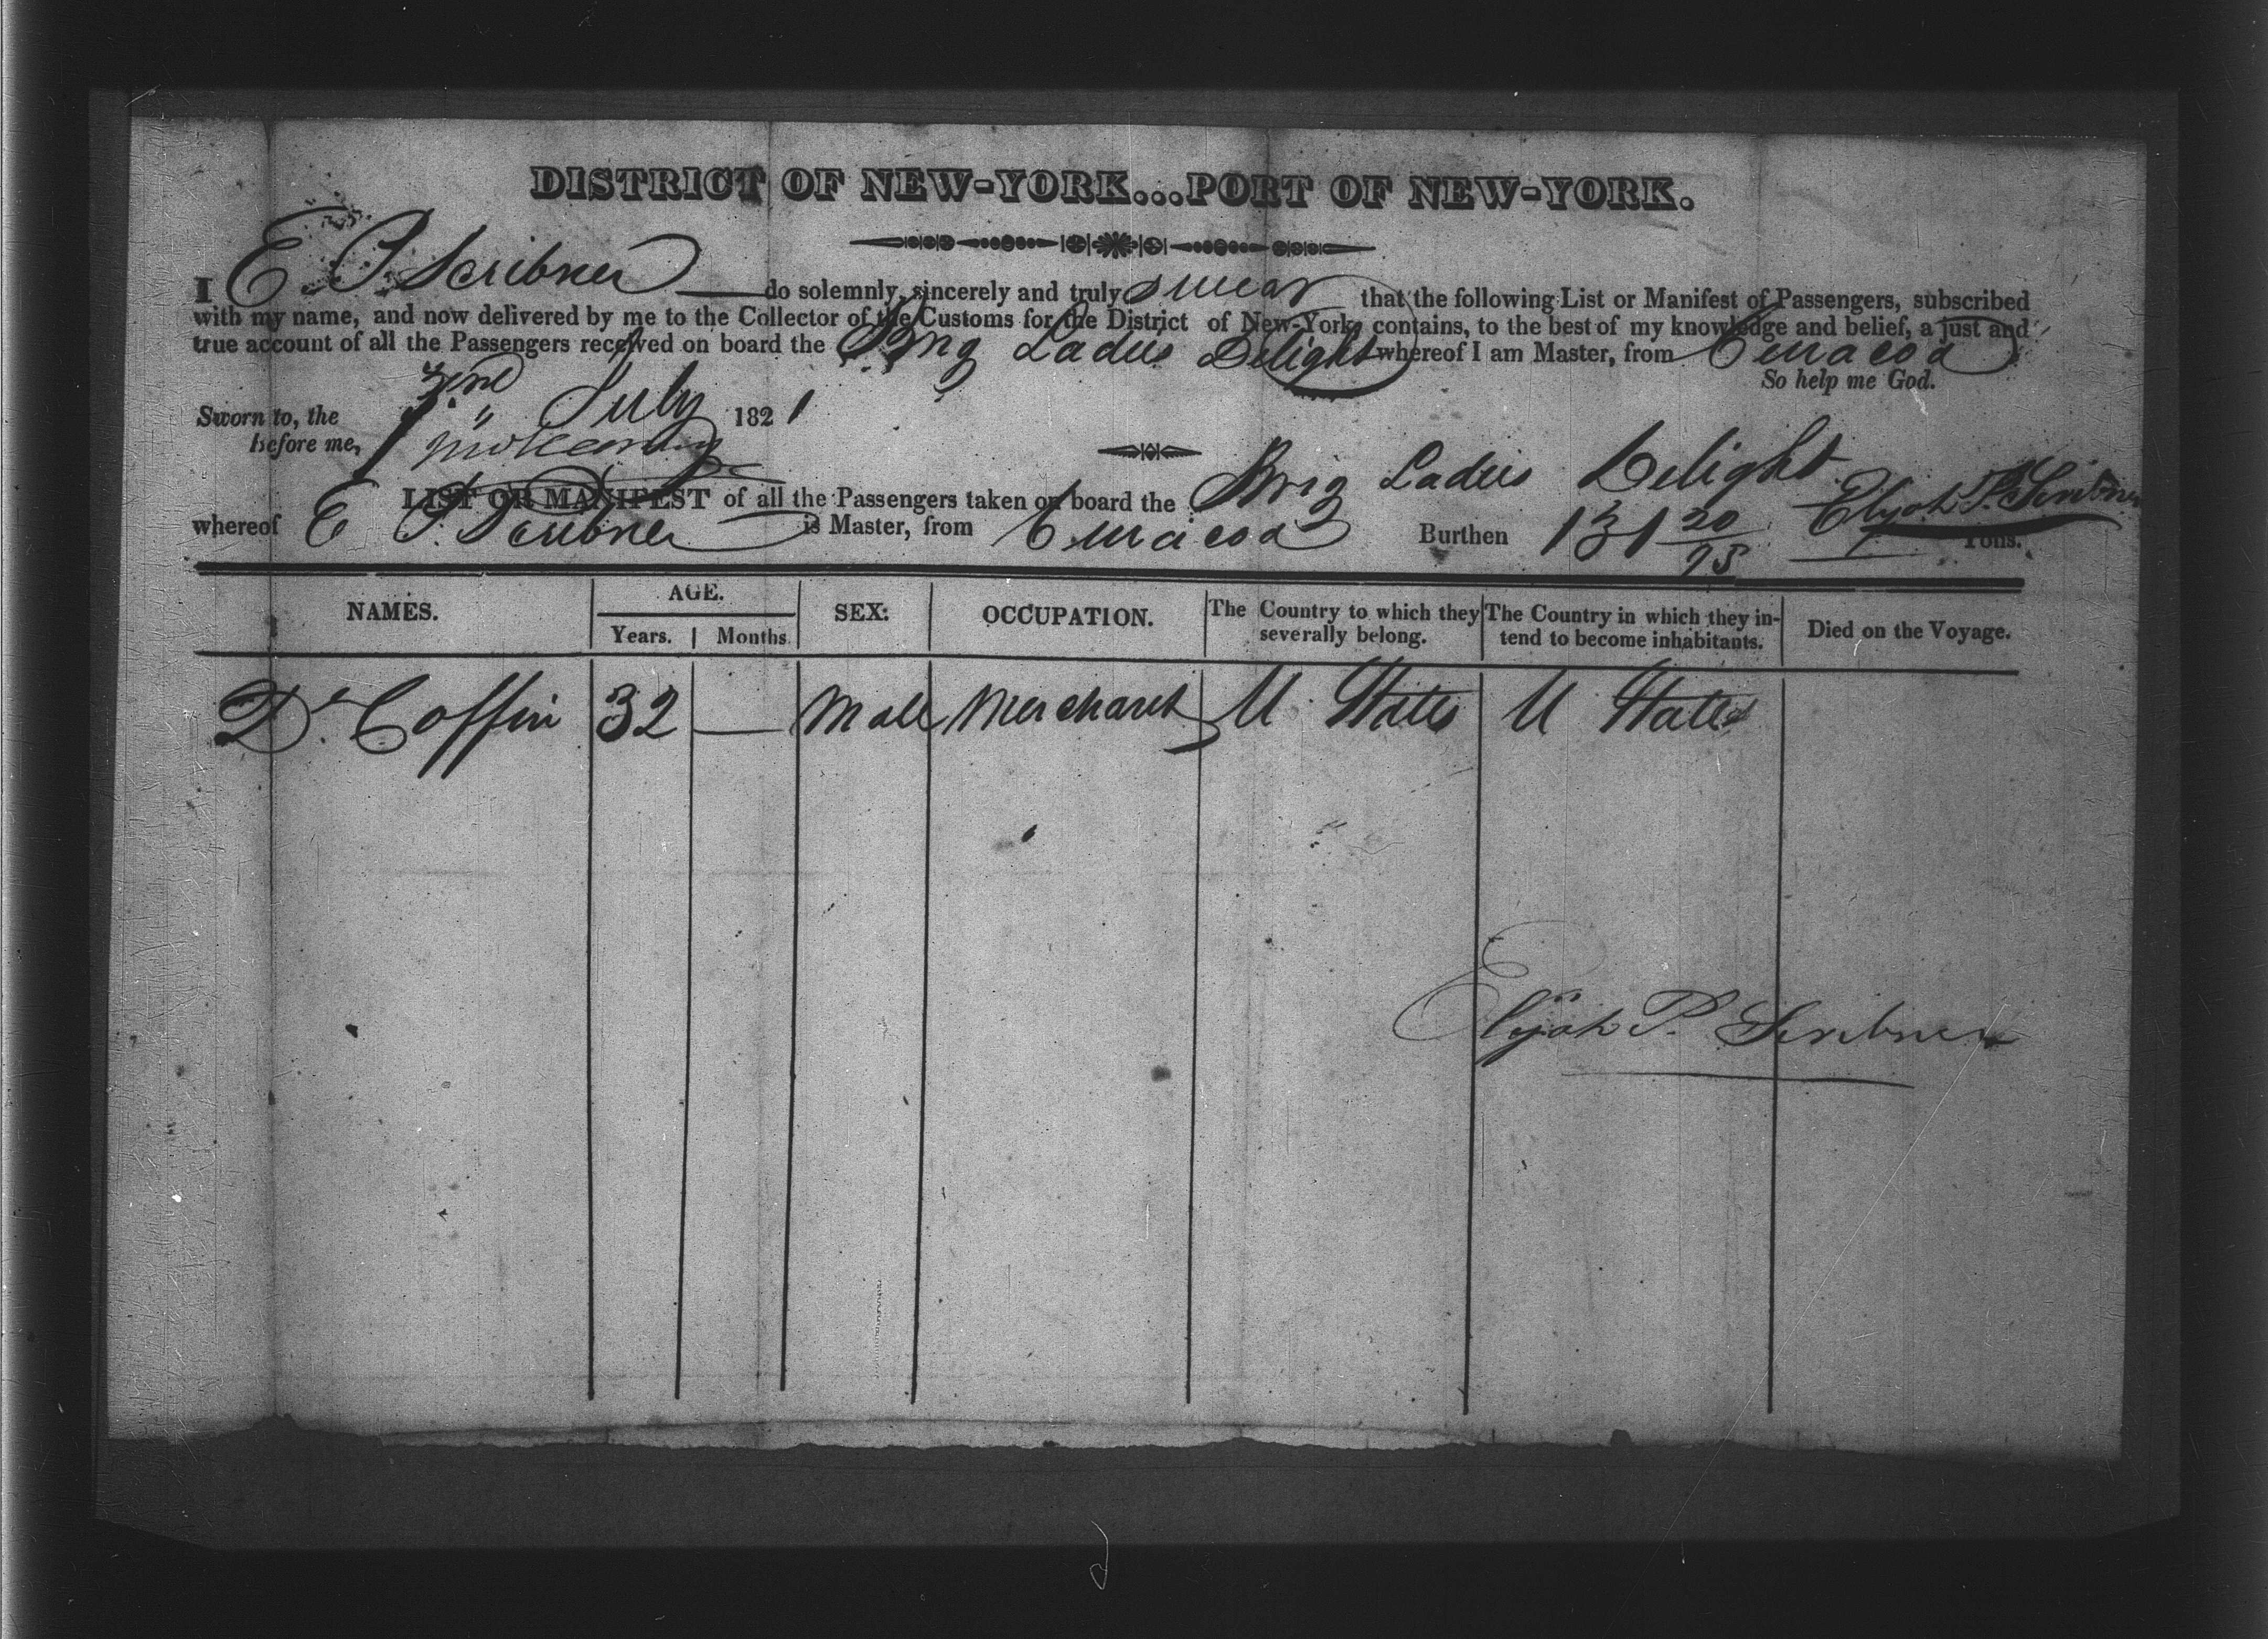 DISTRICT OF NEW-YORK...PORT OF NEW-YORK.
I E. P. Scribner do solemnly, sincerely and truly swear that the following List or Manifest of Passengers, subscribed
with my name, and now delivered by me to the Collector of the Customs for the District of New-York, contains, to the best of my knowledge and belief, a just and
true account of all the Passengers received on board the Brig Ladies Delight whereof I am Master, from Curacoa
So help me God.
Sworn to, the July 1821
before me,
LIST OR MANIFEST of all the Passengers taken on board the Brig Ladies Delight Elijah P. Scribner
whereof E P. Scribner is Master, from Curacoa Burthen 131 20/95 Tons.
NAMES. AGE. SEX: OCCUPATION. The Country to which they severally belong. The Country in which they intend to become inhabitants. Died on the Voyage.
Years. Months.
Dr. Coffin 32 — Male Merchant U States U States
Elijah P. Scribner